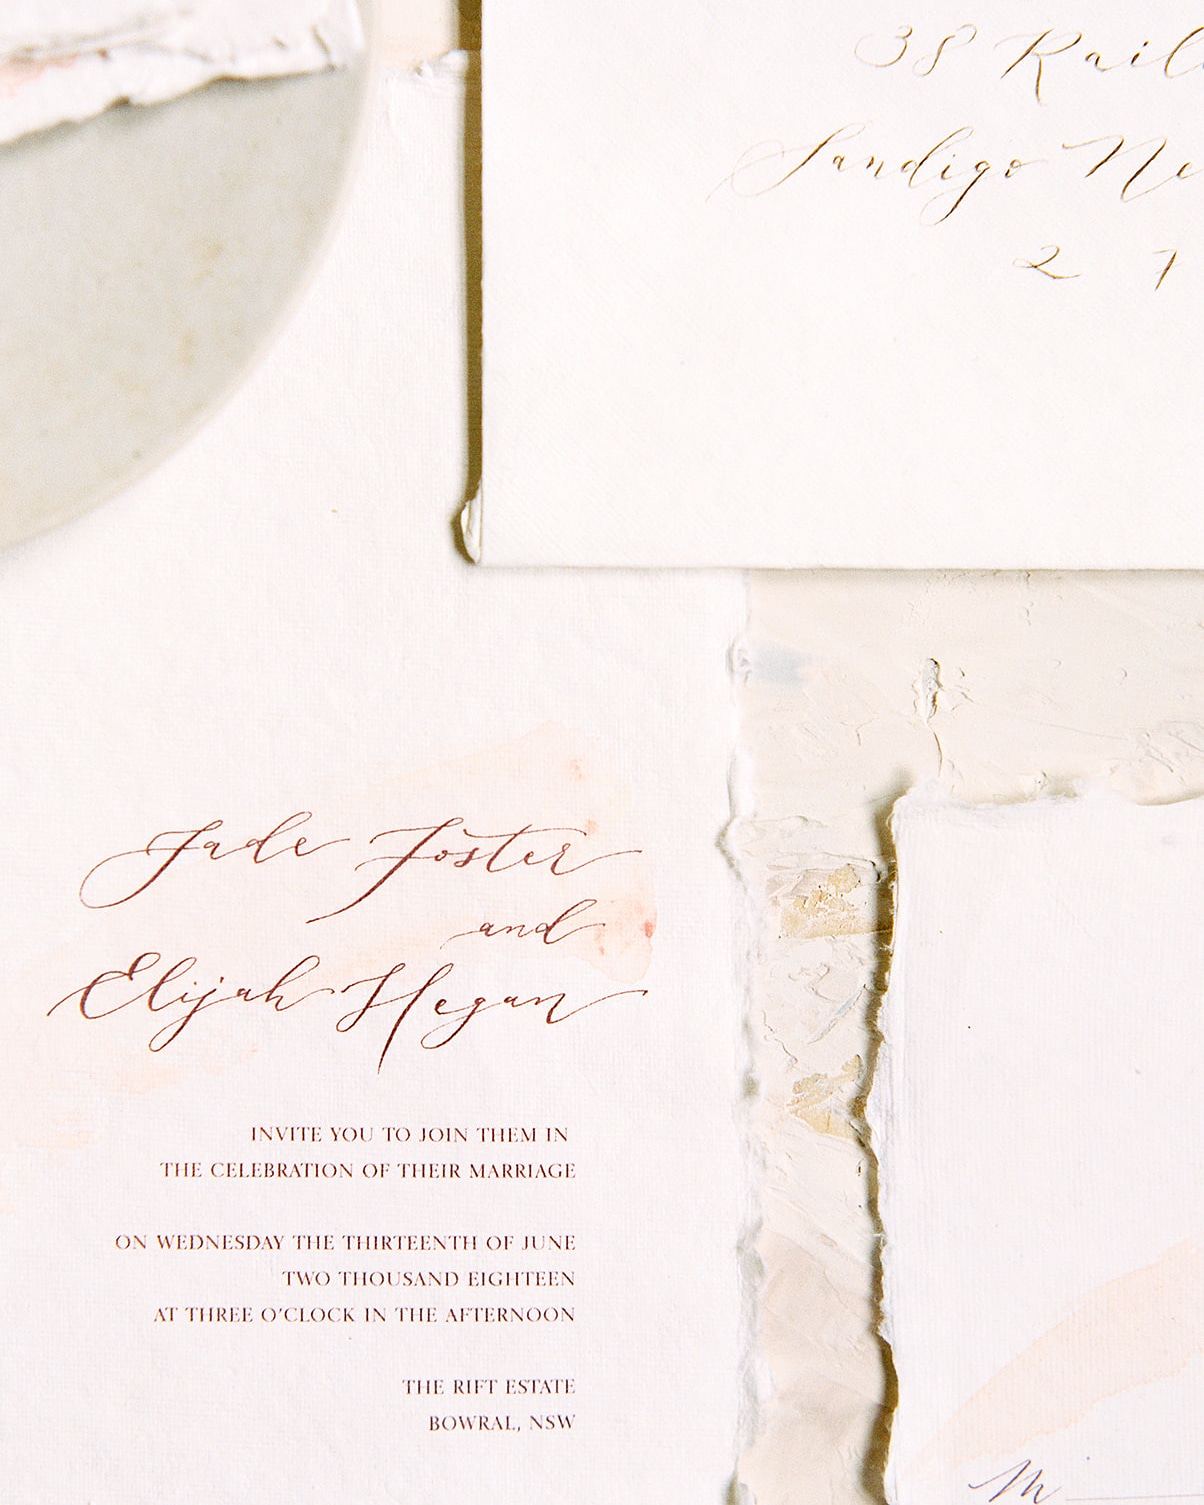 38
Sandigo
2 7
Jade Foster
and
Elijah Hegan
INVITE YOU TO JOIN THEM IN
THE CELEBRATION OF THEIR MARRIAGE
ON WEDNESDAY THE THIRTEENTH OF JUNE
TWO THOUSAND EIGHTEEN
AT THREE O'CLOCK IN THE AFTERNOON
THE RIFT ESTATE
BOWRAL, NSW
M